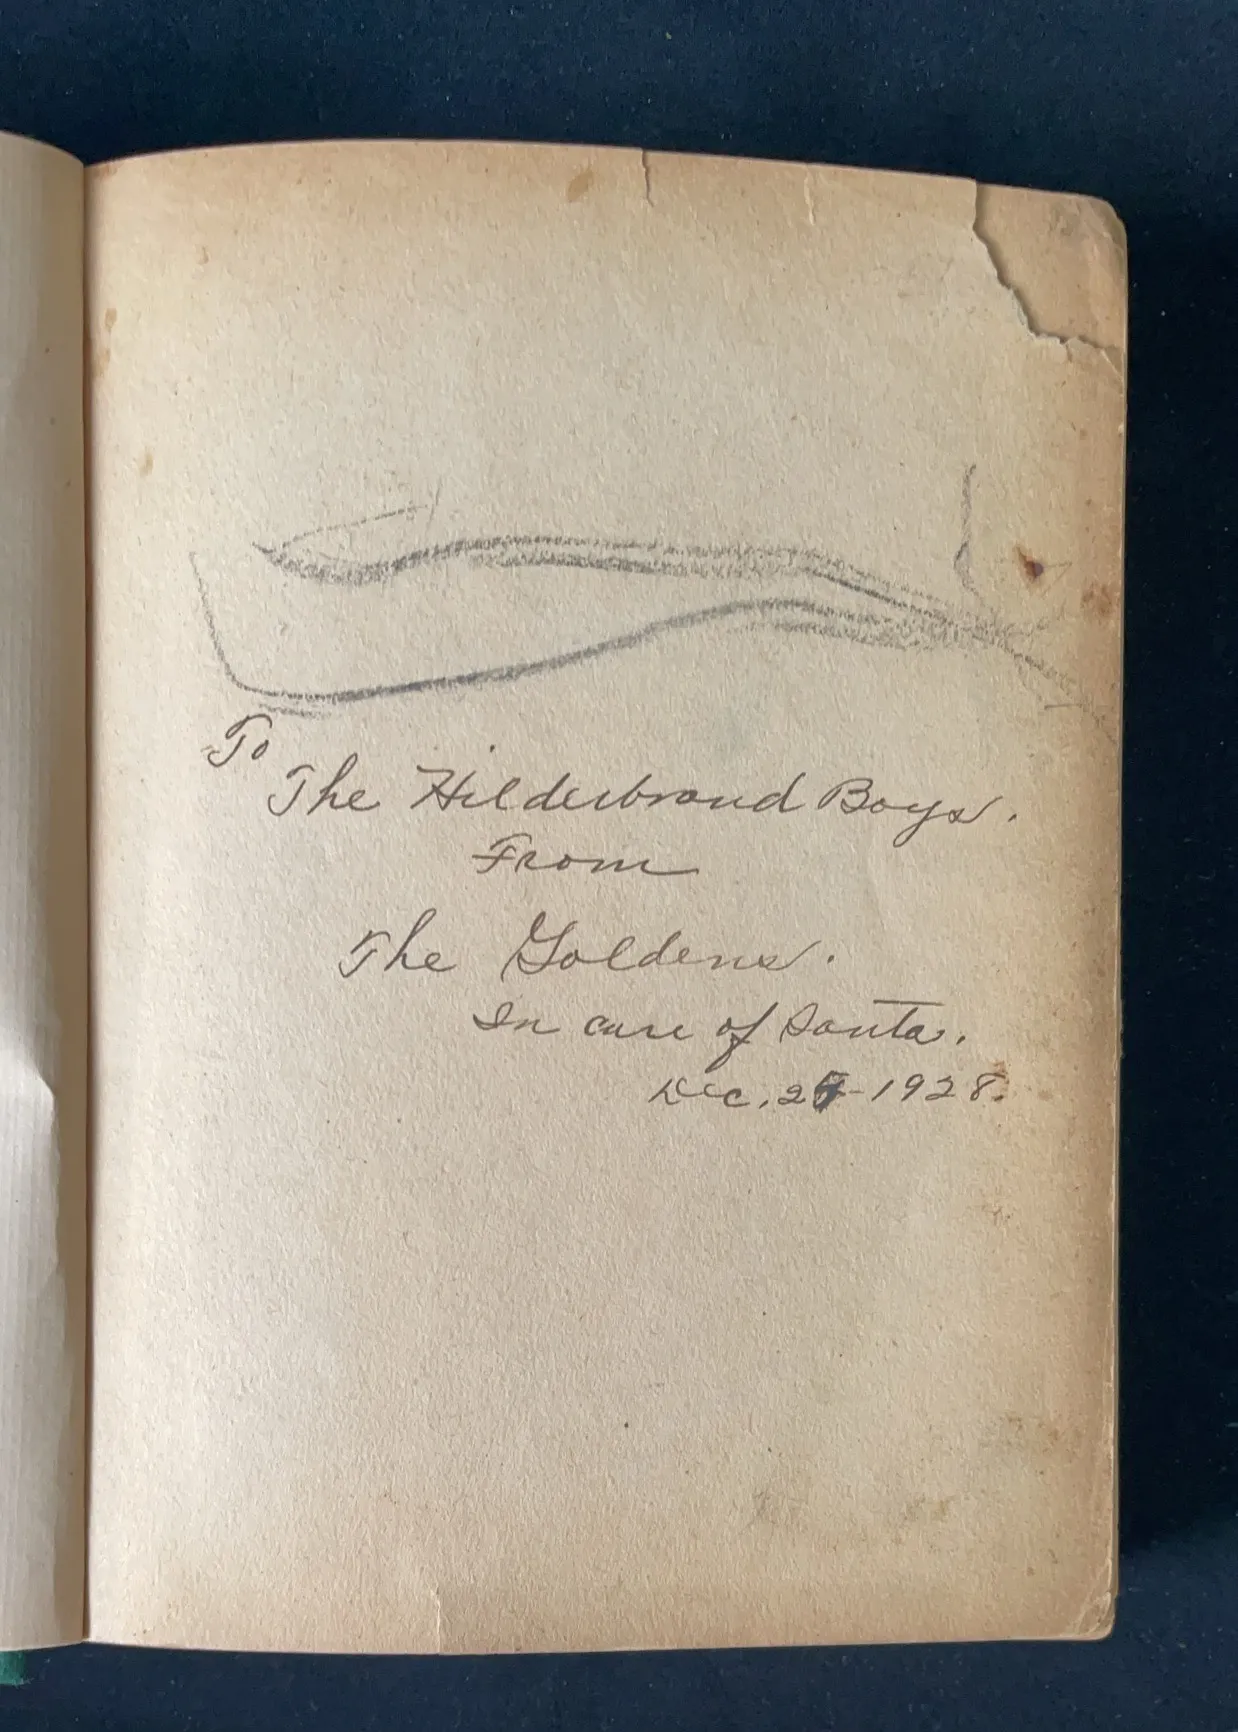 To
The Hilderbrand Boys.
From
The Goldens.
In care of Santa.
Dec. 25-1928.